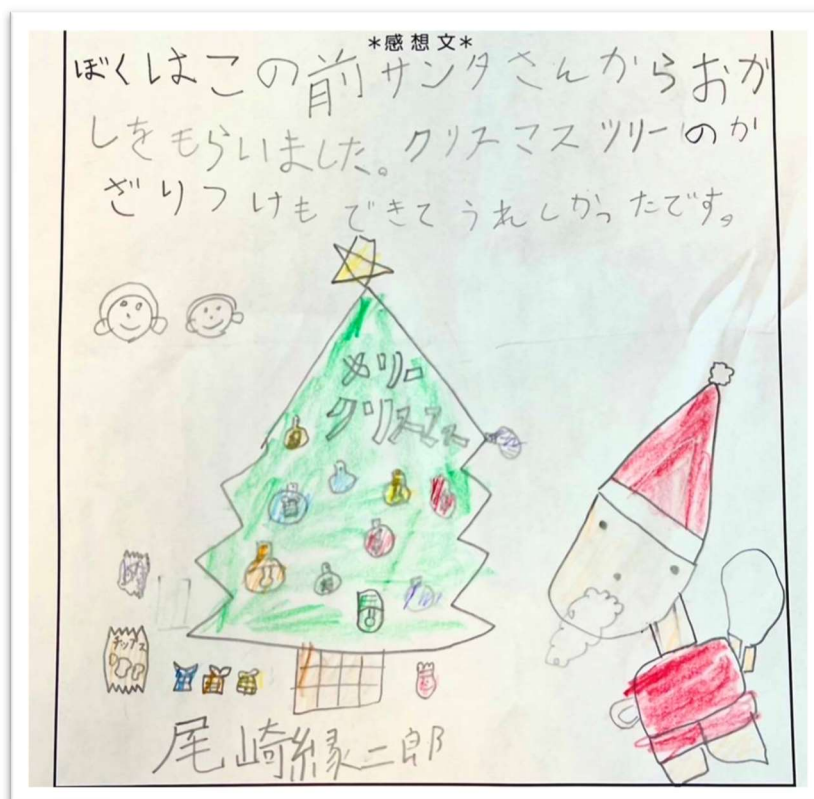 *感想文*
ぼくはこの前サンタさんからおか
しをもらいました。クリスマスツリーのか
ざりつけもできてうれしかったです。
メリー
クリスマス
チップス
尾崎縁二郎